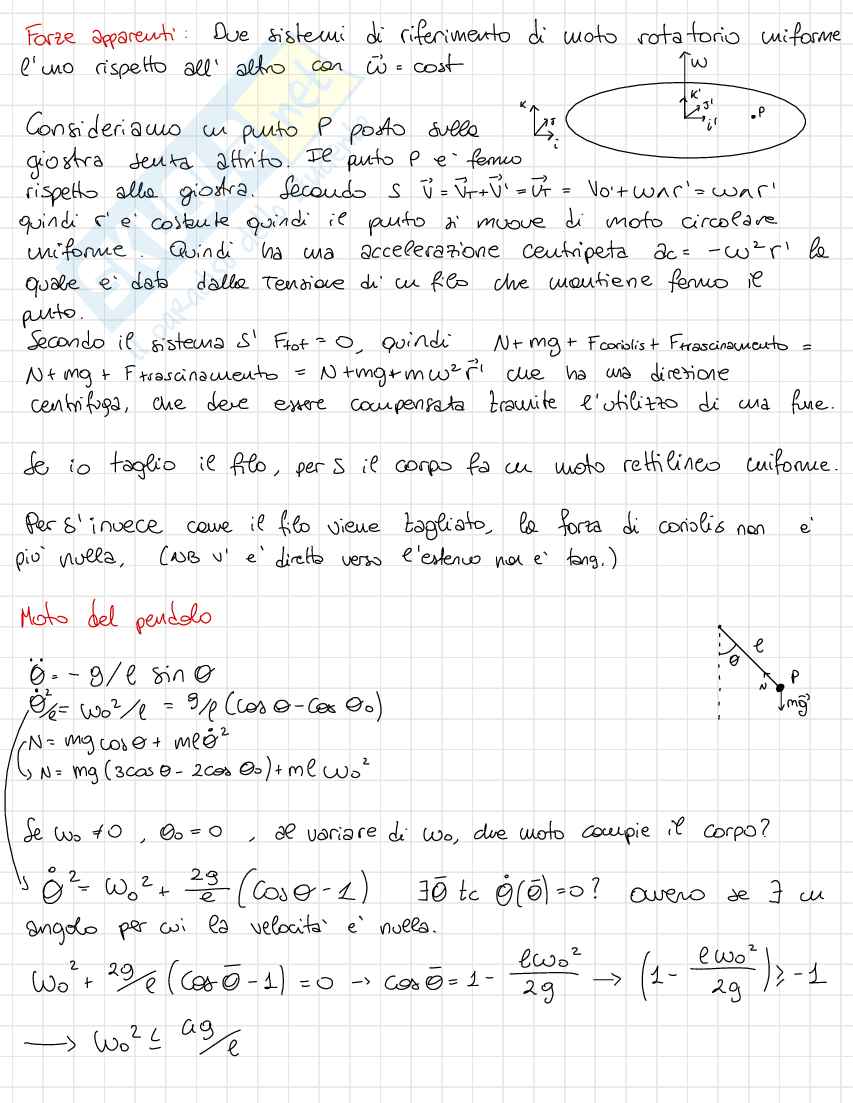 Forze apparenti: Due sistemi di riferimento di moto rotatorio uniforme
l'uno rispetto all'altro con ω⃗ = cost
ω
K'
J'
i'
P
K
J
i
Consideriamo un punto P posto sulla
giostra senza attrito. Il punto P e' fermo
rispetto alla giostra. Secondo S V⃗ = V⃗τ + V⃗' = V⃗τ = Vo' + ω∧r' = ω∧r'
quindi r' e' costante quindi il punto si muove di moto circolare
uniforme. Quindi ha una accelerazione centripeta ac = -ω²r' la
quale e' data dalla Tensione di un filo che mantiene fermo il
punto.
Secondo il sistema S' Ftot = 0, quindi N + mg + Fcoriolis + Ftrascinamento =
N + mg + Ftrascinamento = N + mg + mω²r⃗' che ha una direzione
centrifuga, che deve essere compensata tramite l'utilizzo di una fune.
Se io taglio il filo, per S il corpo fa un moto rettilineo uniforme.
Per S' invece come il filo viene tagliato, la forza di coriolis non e'
piu' nulla, (NB V' e' diretta verso l'esterno non e' tang.)
Moto del pendolo
θ̈ = - g/l sin θ
θ̇²/2 = ω₀²/2 = g/l (cos θ - cos θ₀)
N = mg cos θ + mlθ̇²
N = mg (3cos θ - 2cos θ₀) + mlω₀²
θ
l
P
N
mg⃗
Se ω₀ ≠ 0, θ₀ = 0, al variare di ω₀, che moto compie il corpo?
θ̇² = ω₀² + 2g/l (cos θ - 1) ∃θ̄ tc θ̇(θ̄) = 0? ovvero se ∃ un
angolo per cui la velocita' e' nulla.
ω₀² + 2g/l (cos θ̄ - 1) = 0 → cos θ̄ = 1 - lω₀²/2g → (1 - lω₀²/2g) ≥ -1
→ ω₀² ≤ 4g/l